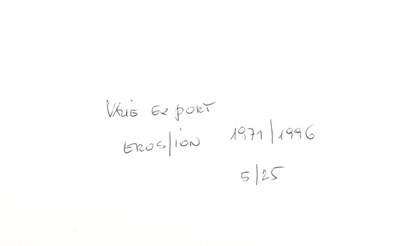 VALIE EXPORT
EROS/ION 1971/1996
5/25